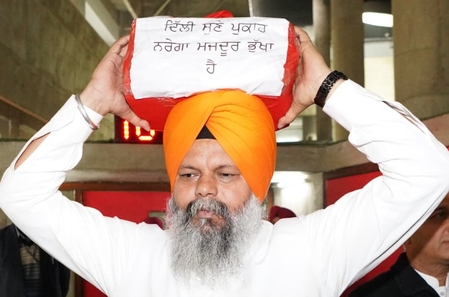 ਦਿੱਲੀ ਸੁਣੇਂ ਪੁਕਾਹ
ਨਰੇਗਾ ਮਜਦੂਰ ਭੁੱਖਾ
ਹੈ